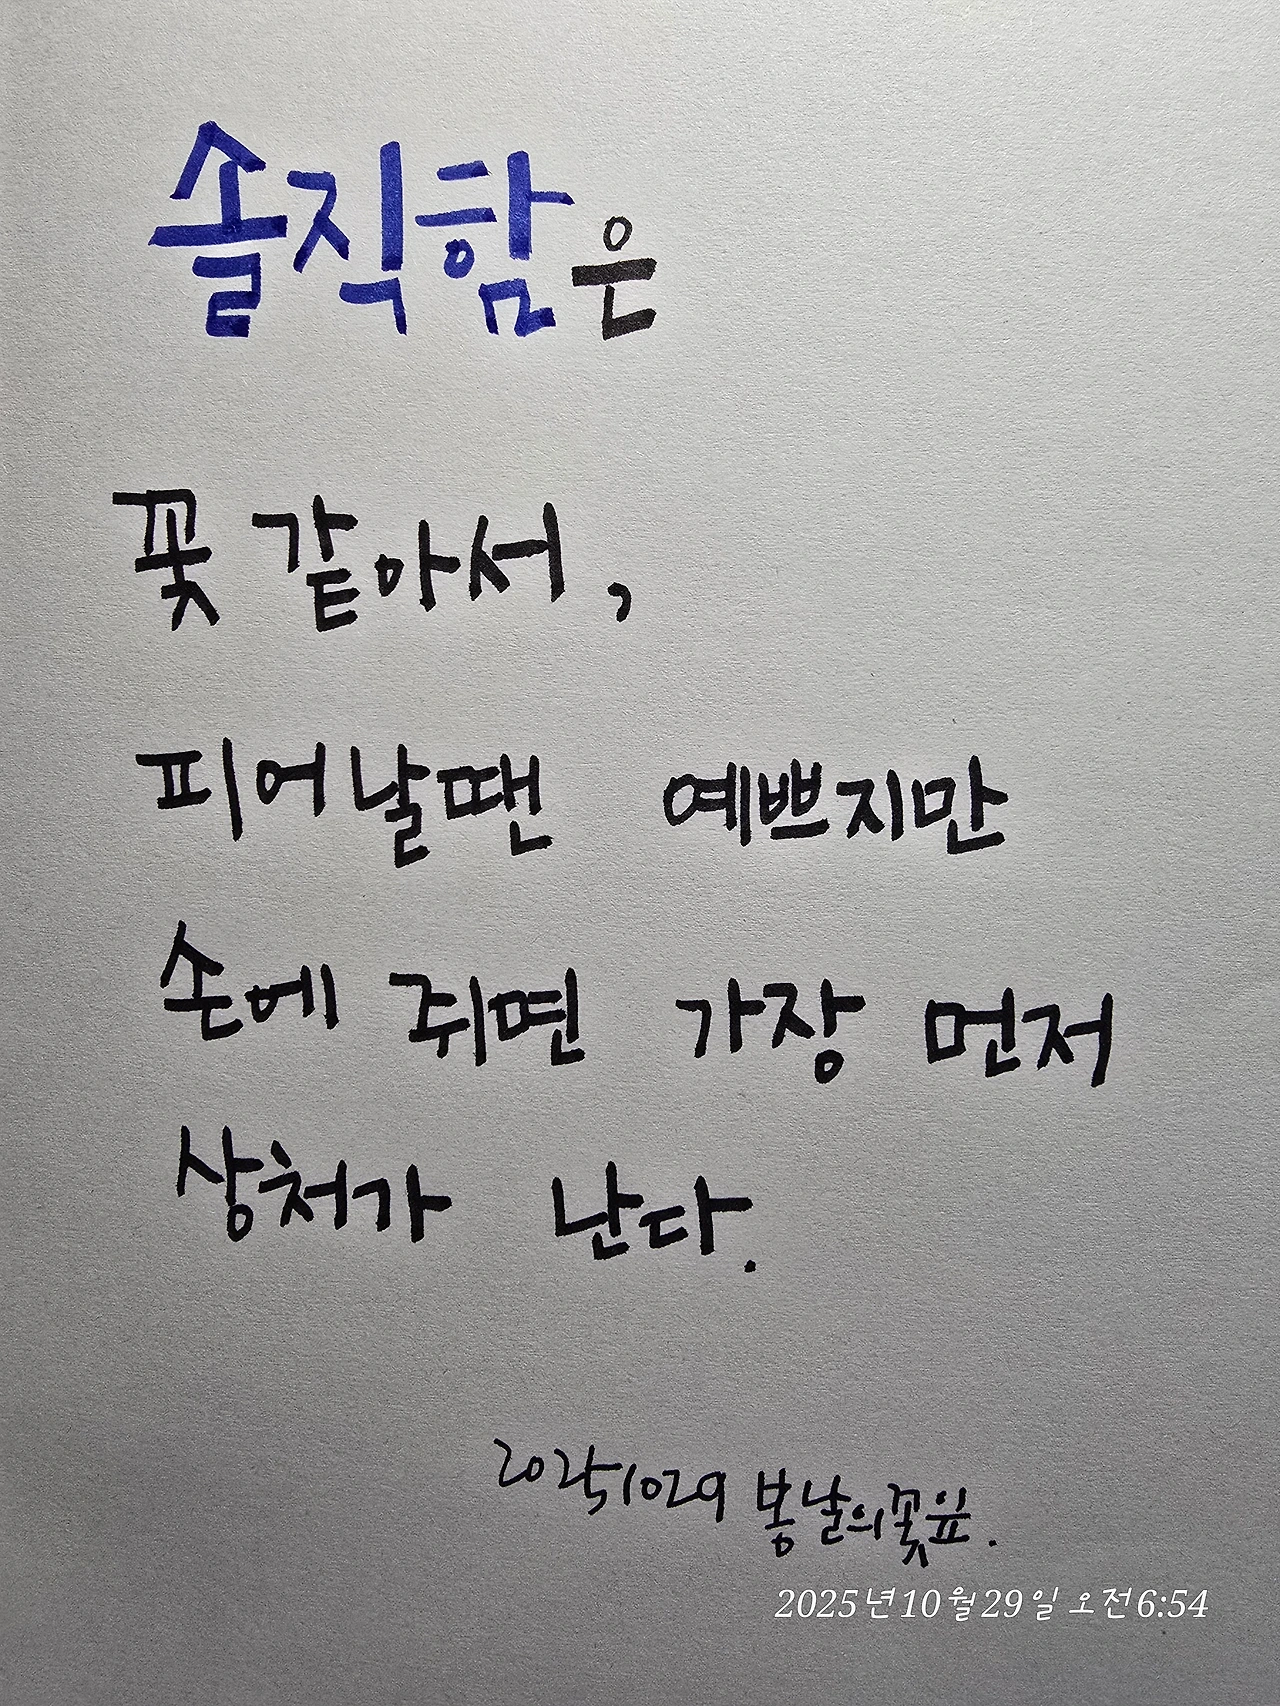 솔직함은
꽃 같아서,
피어날땐 예쁘지만
손에 쥐면 가장 먼저
상처가 난다.
20251029 봉날의꽃잎.
2025년 10월 29일 오전 6:54